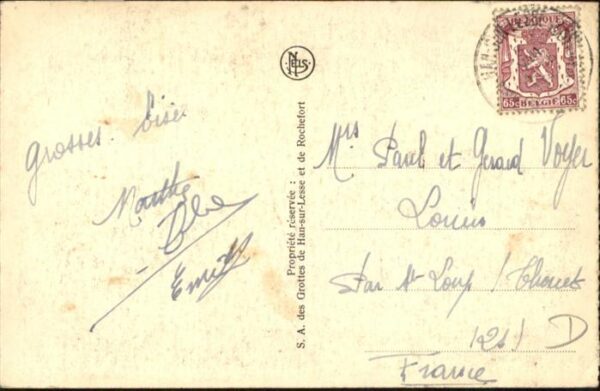 Grosses bises
Marthe
Emile
NELS
Propriété réservée :
S. A. des Grottes de Han-sur-Lesse et de Rochefort
BELGIQUE
65c BELGIE 65c
Mrs Paul et Gérard Voyer
Louin
Par St Loup / Thouet
France